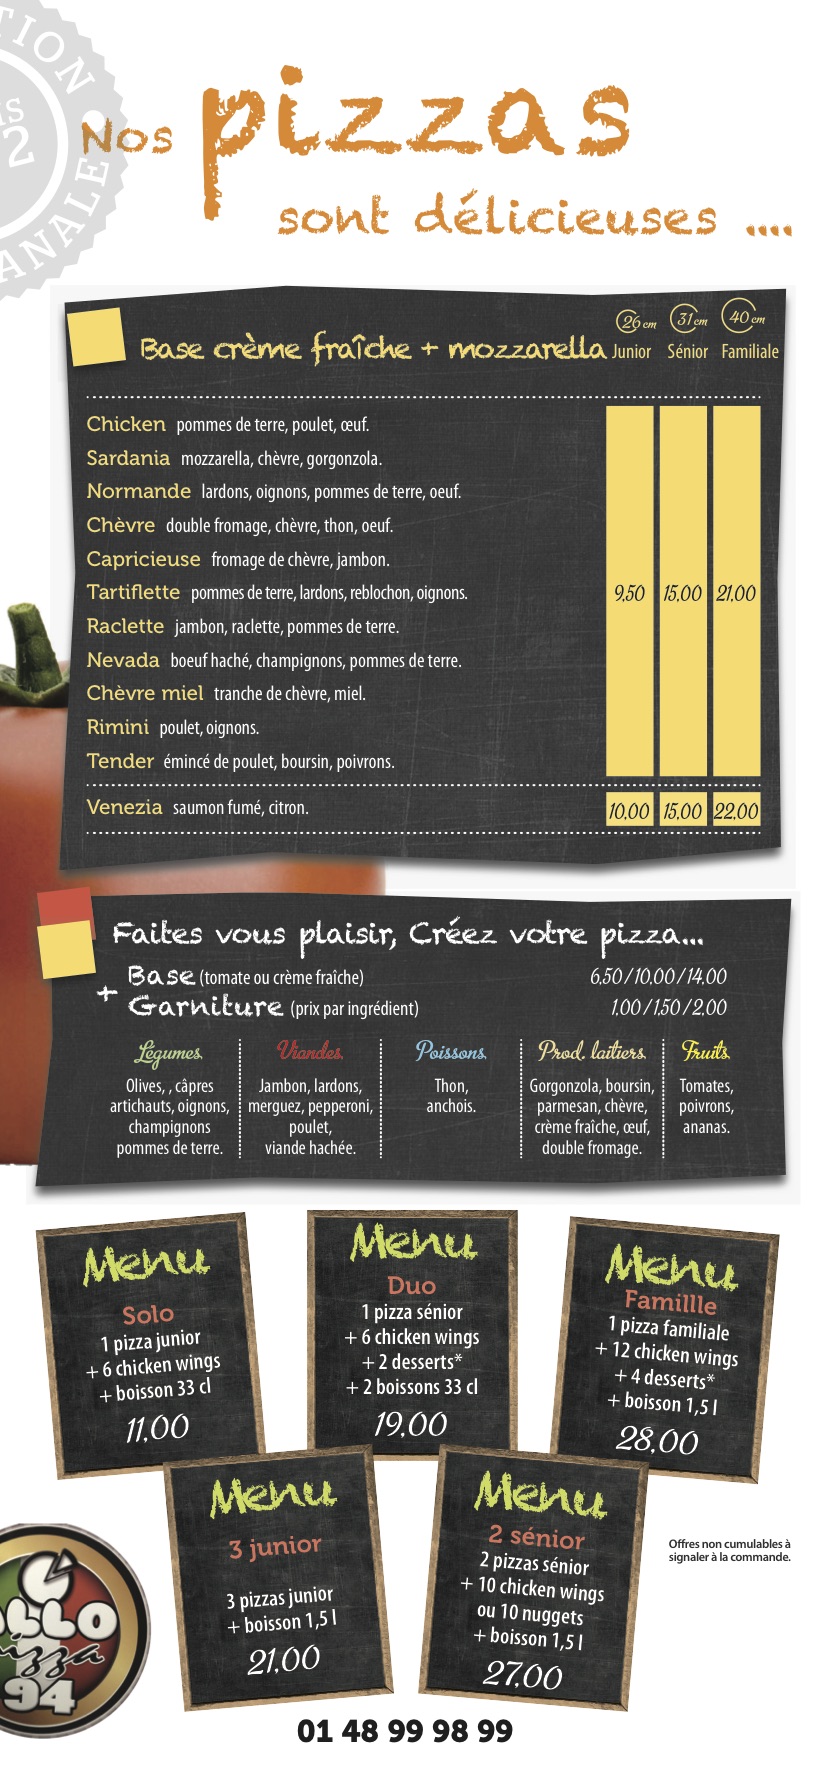 TION
IS
2
ANALE
Nos pizzas
sont délicieuses ....
Base crème fraîche + mozzarella
26 cm 31 cm 40 cm
Junior Sénior Familiale
Chicken pommes de terre, poulet, œuf.
Sardania mozzarella, chèvre, gorgonzola.
Normande lardons, oignons, pommes de terre, oeuf.
Chèvre double fromage, chèvre, thon, oeuf.
Capricieuse fromage de chèvre, jambon.
Tartiflette pommes de terre, lardons, reblochon, oignons.
9,50 15,00 21,00
Raclette jambon, raclette, pommes de terre.
Nevada boeuf haché, champignons, pommes de terre.
Chèvre miel tranche de chèvre, miel.
Rimini poulet, oignons.
Tender émincé de poulet, boursin, poivrons.
Venezia saumon fumé, citron.
10,00 15,00 22,00
Faites vous plaisir, Créez votre pizza...
Base (tomate ou crème fraîche) 6,50 / 10,00 / 14,00
+ Garniture (prix par ingrédient) 1,00 / 1,50 / 2,00
Légumes
Olives, , câpres
artichauts, oignons,
champignons
pommes de terre.
Viandes
Jambon, lardons,
merguez, pepperoni,
poulet,
viande hachée.
Poissons
Thon,
anchois.
Prod. laitiers
Gorgonzola, boursin,
parmesan, chèvre,
crème fraîche, œuf,
double fromage.
Fruits
Tomates,
poivrons,
ananas.
Menu
Solo
1 pizza junior
+ 6 chicken wings
+ boisson 33 cl
11,00
Menu
Duo
1 pizza sénior
+ 6 chicken wings
+ 2 desserts*
+ 2 boissons 33 cl
19,00
Menu
Famillle
1 pizza familiale
+ 12 chicken wings
+ 4 desserts*
+ boisson 1,5 l
28,00
Menu
3 junior
3 pizzas junior
+ boisson 1,5 l
21,00
Menu
2 sénior
2 pizzas sénior
+ 10 chicken wings
ou 10 nuggets
+ boisson 1,5 l
27,00
Offres non cumulables à
signaler à la commande.
LLO
izza
94
01 48 99 98 99